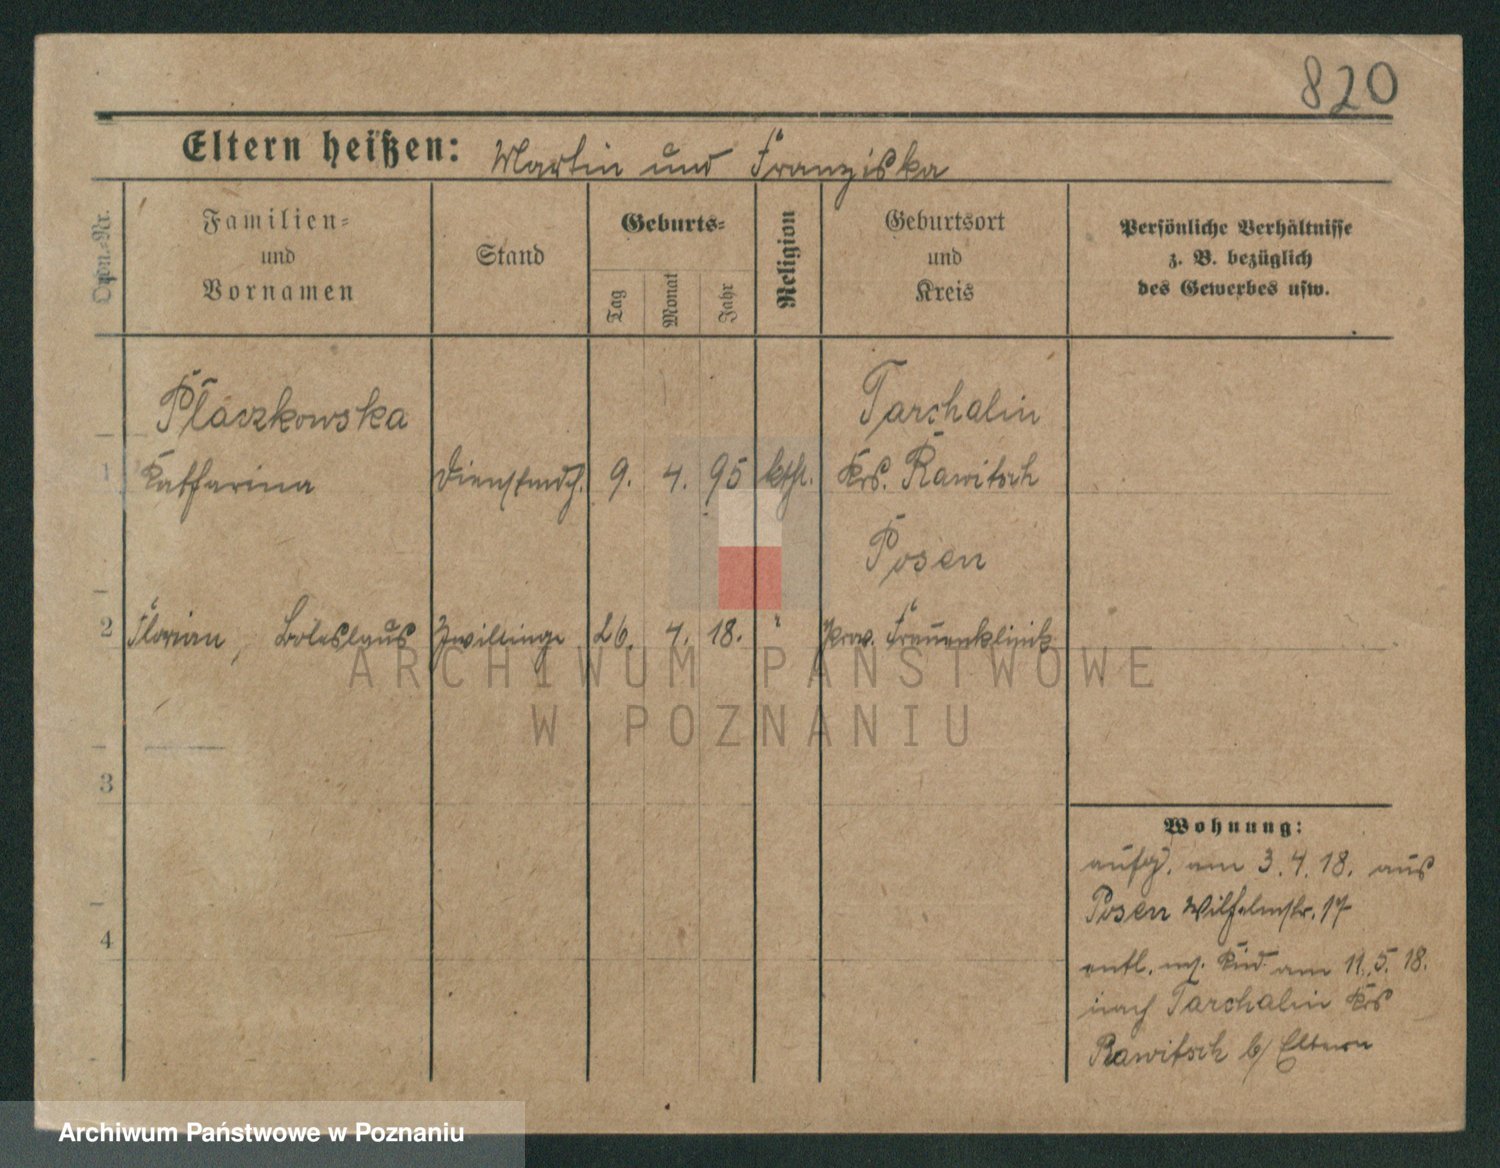 820
Eltern heißen: Martin und Franziska
Ordn.-Nr.
Familien-
und
Vornamen
Stand
Geburts-
Tag
Monat
Jahr
Religion
Geburtsort
und
Kreis
Persönliche Verhältnisse
z. B. bezüglich
des Gewerbes usw.
Placzkowska
Tarchalin
1 Katharina Dienstmdch. 9. 4. 95 kthl. Krs. Rawitsch
Posen
2 Florian, Boleslaus Zwillinge 26. 4. 18. " Prov. Frauenklinik
3
4
Wohnung:
aufg. am 3.4.18. aus
Posen Wilhelmstr. 17
entl. m. Kind am 11.5.18.
nach Tarchalin Krs
Rawitsch b/ Eltern
ARCHIWUM PAŃSTWOWE
W POZNANIU
Archiwum Państwowe w Poznaniu